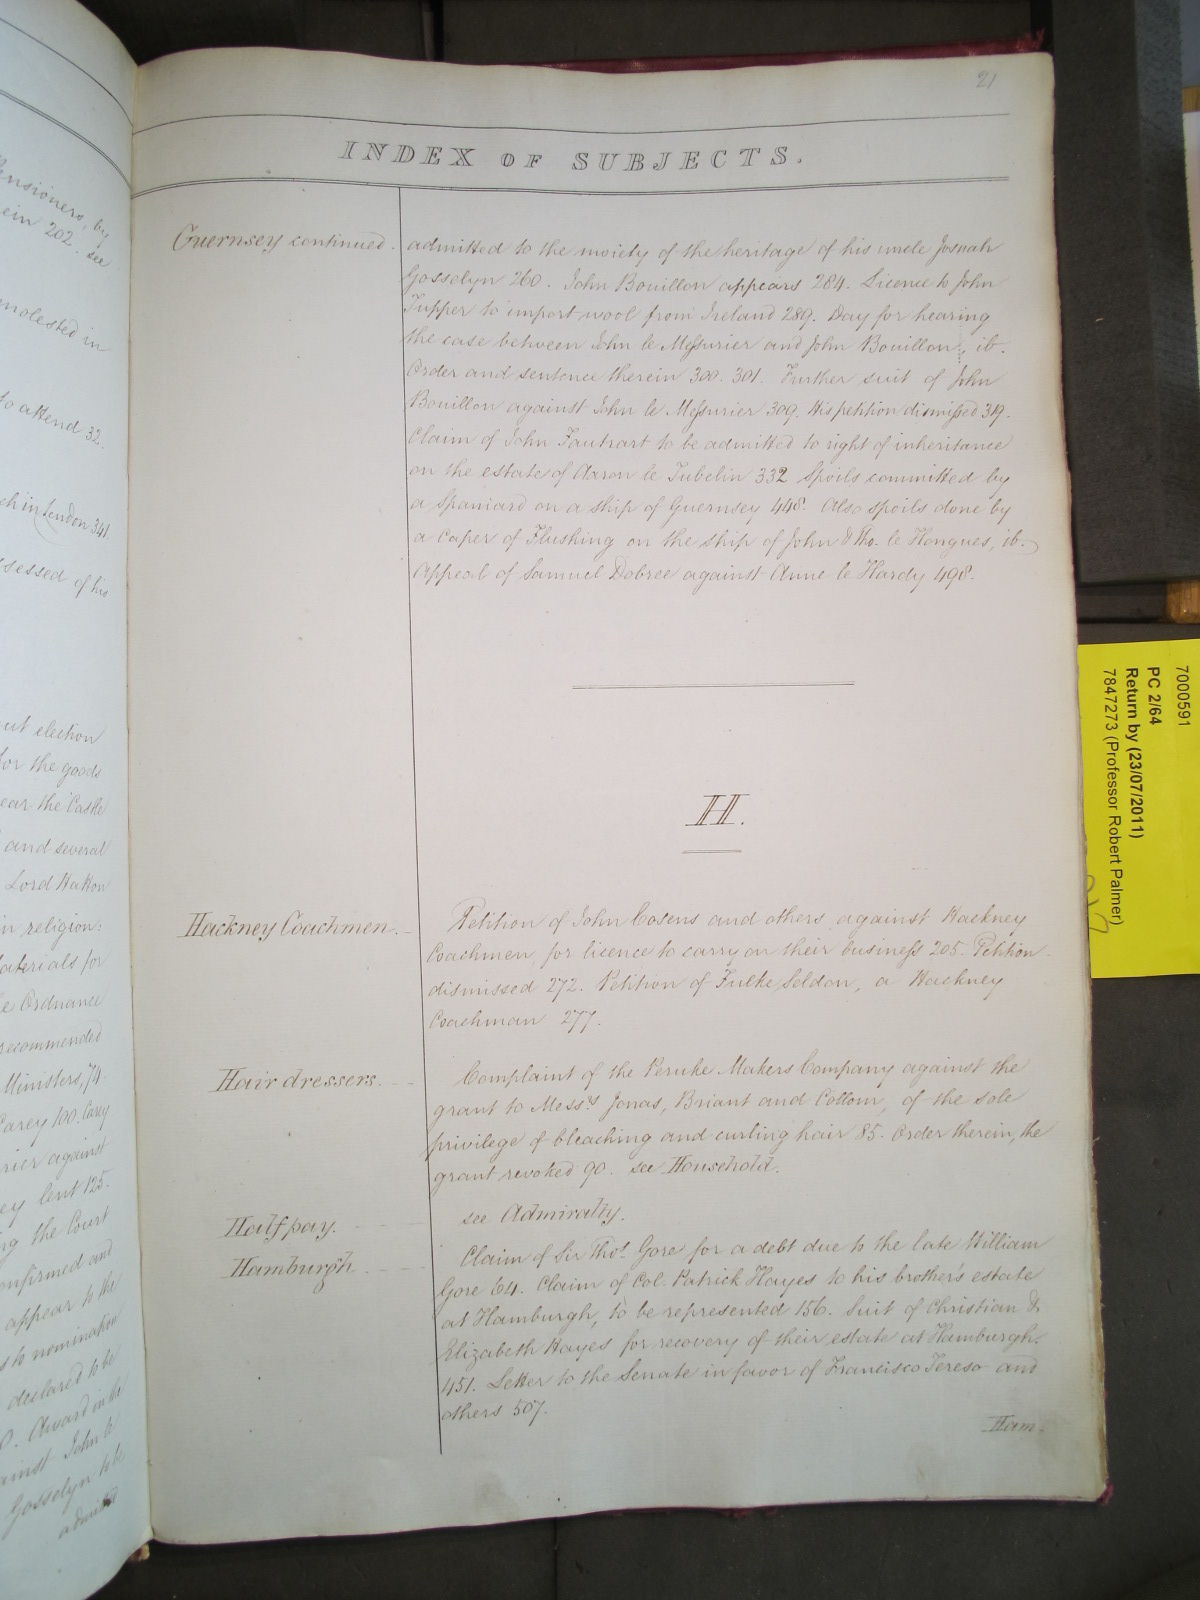 21
INDEX OF SUBJECTS.
Guernsey continued.
admitted to the moiety of the heritage of his uncle Josuah
Gosselyn 260. John Bouillon appears 284. Licence to John
Tupper to import wool from Ireland 289. Day for hearing
the case between John le Messurier and John Bouillon, ib.
Order and sentence therein 300. 301. Further suit of John
Bouillon against John le Messurier 309. His petition dismissed 319.
Claim of John Fautrart to be admitted to right of inheritance
on the estate of Aaron le Tubelin 332 Spoils committed by
a Spaniard on a ship of Guernsey 448. Also spoils done by
a Caper of Flushing on the ship of John & Tho. le Hongues, ib.
Appeal of Samuel Dobree against Anne le Hardy 498.
H.
Hackney Coachmen.
Petition of John Cosens and others against Hackney
Coachmen for licence to carry on their business 205. Petition
dismissed 272. Petition of Fulke Seldon, a Hackney
Coachman 277.
Hair dressers.
Complaint of the Peruke Makers Company against the
grant to Messrs Jonas, Briant and Collom, of the sole
privilege of bleaching and curling hair 85. Order therein, the
grant revoked 90. see Household.
Half pay.
see Admiralty.
Hamburgh.
Claim of Sir Thos. Gore for a debt due to the late William
Gore 64. Claim of Col. Patrick Hayes to his brother's estate
at Hamburgh, to be represented 156. Suit of Christian &
Elizabeth Hayes for recovery of their estate at Hamburgh.
451. Letter to the Senate in favor of Francisco Tereso and
others 507.
Ham-
ensioners, by
ein 202. see
molested in
to attend 32.
ch in London 341.
ssessed of his
ut election
for the goods
ear the Castle
and several
Lord Hatton
in religion:
aterials for
e Ordnance
recommended
Ministers, 74.
Carey 100. Carey
rier against
ey lent 125.
ng the Court
onfirmed and
appear to the
s to nomination
declared to be
0. Award in the
ainst John le
Gosselyn to be
admitted
7000591
PC 2/64
Return by (23/07/2011)
7847273 (Professor Robert Palmer)